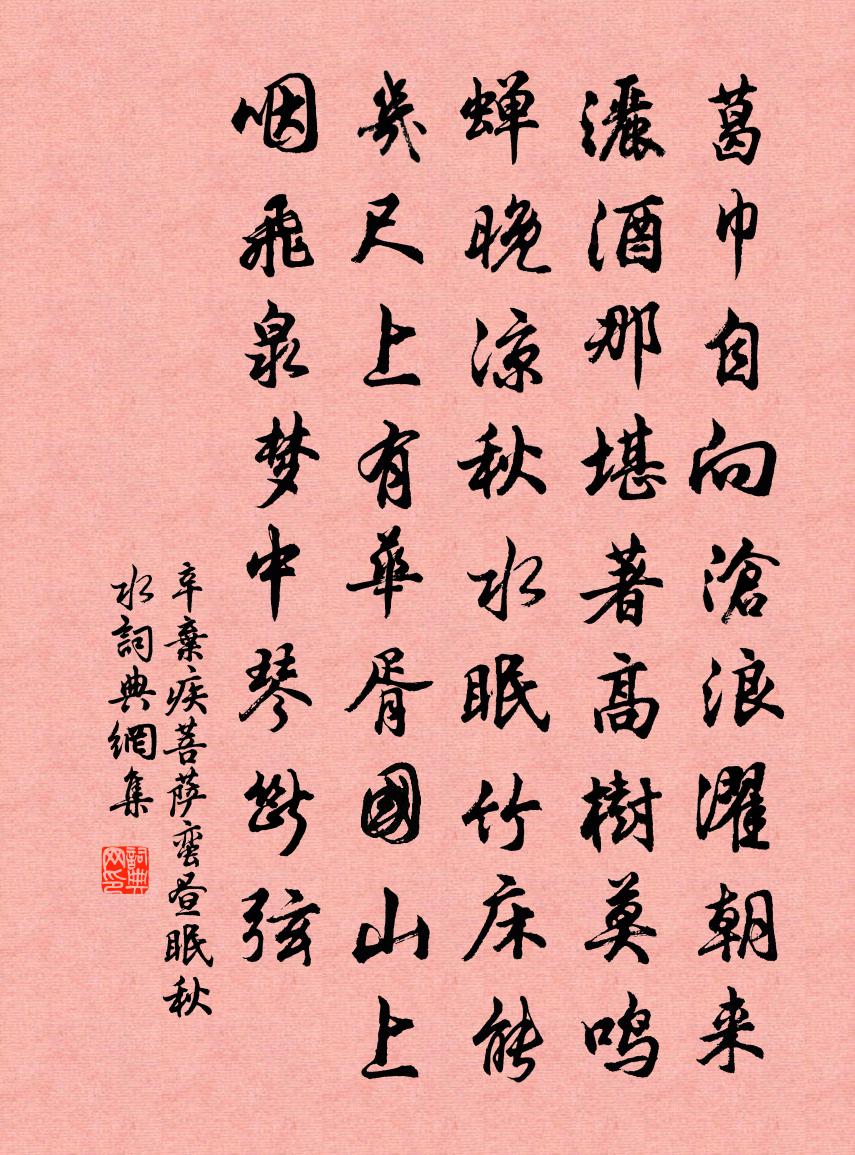 葛巾自向滄浪濯朝来
灑酒那堪著高樹莫鸣
蝉晚凉秋水眠竹床能
幾尺上有華胥國山上
咽飛泉梦中琴斷弦
辛棄疾菩萨蛮昼眠秋
水詞典網集
詞典
网印